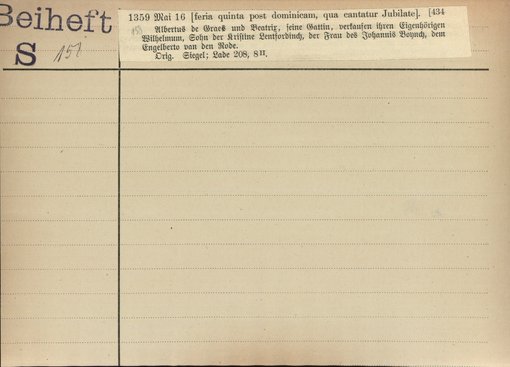 Beiheft
S 151
1359 Mai 16 [feria quinta post dominicam, qua cantatur Jubilate]. [434
Albertus de Graes und Beatrix, seine Gattin, verkaufen ihren Eigenhörigen
Wilhelmum, Sohn der Kristine Lentfordinch, der Frau des Johannis Boynch, dem
Engelberto van den Rode.
Orig. Siegel; Lade 208, 8 II.